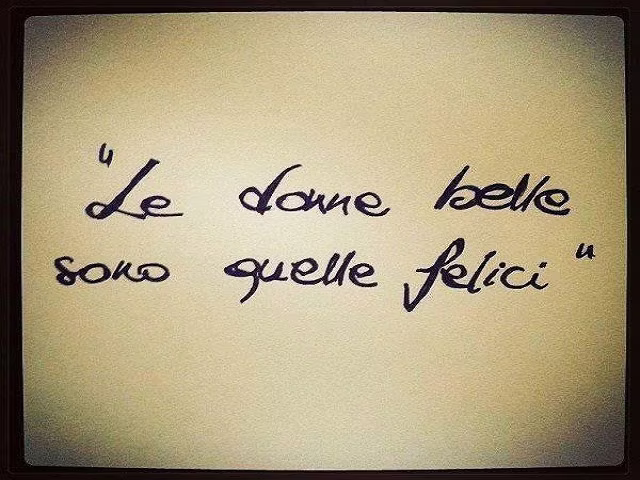 "Le donne belle
sono quelle felici"